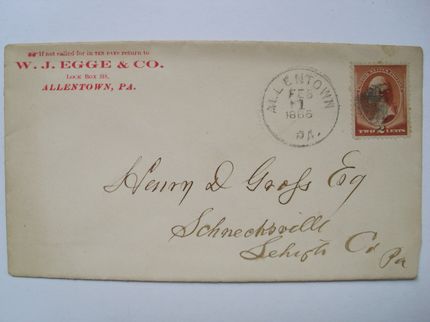 If not called for in TEN DAYS return to
W. J. EGGE & CO.
LOCK BOX
ALLENTOWN, PA.
ALLENTOWN
FEB
1
1886
PA.
TWO 2 CENTS
Henry D Gross Esq
Schnecksville
Lehigh Co
Pa